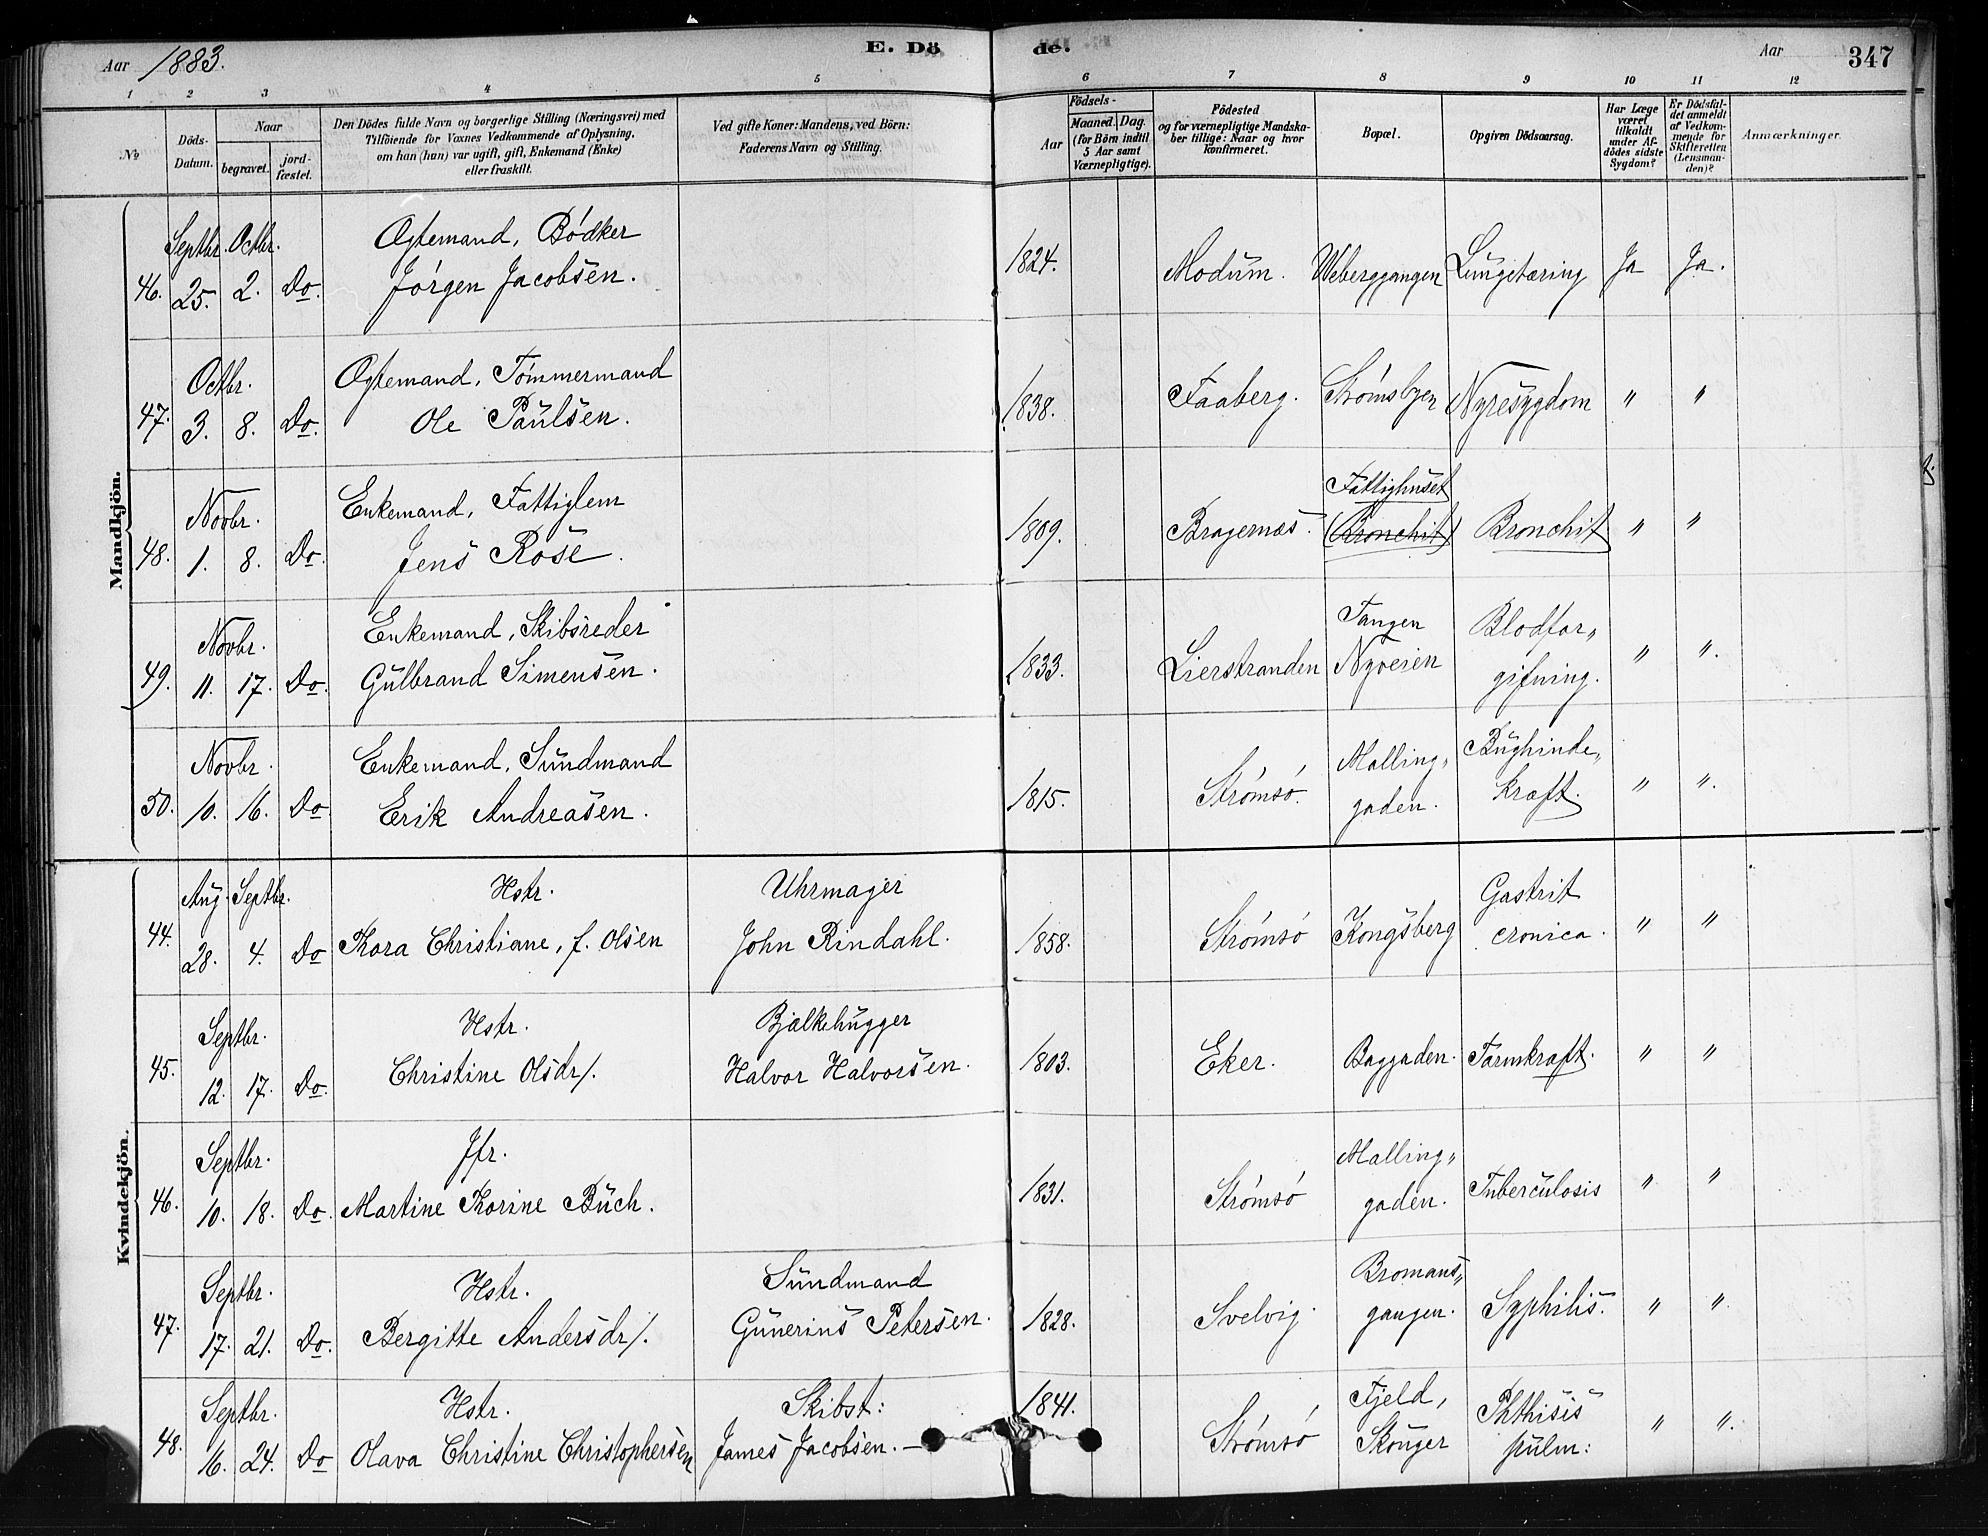 Aar 1883.
E. Dö de.
Aar
347
1 2 3 4 5 6 7 8 9 10 11 12
No
Döds-Datum.
Naar
begravet.
jord-fæstet.
Den Dödes fulde Navn og borgerlige Stilling (Næringsvei) med
Tilföiende for Voxnes Vedkommende af Oplysning,
om han (han) var ugift, gift, Enkemand (Enke)
eller fraskilt.
Ved gifte Koner: Mandens, ved Börn:
Faderens Navn og Stilling.
Aar
Födsels-
Maaned. Dag.
(for Börn indtil
5 Aar samt
Værnepligtige).
Födested
og for værnepligtige Mandska-
ber tillige: Naar og hvor
konfirmeret.
Bopæl.
Opgiven Dödsaarsag.
Har Læge
været
tilkaldt
under Af-
dödes sidste
Sygdom?
Er Dödsfal-
det anmeldt
af Vedkom-
mende for
Skifteretten
(Lensman-
den)?
Anmærkninger.
Mandkjön.
Septbr. Octbr. Ægtemand, Bødker
46. 25. 2. Do. Jørgen Jacobsen. 1824. Modum. Weberggangen Lungetæring Ja Ja.
Octbr. Ægtemand, Tømmermand
47. 3. 8. Do. Ole Paulsen. 1838. Faaberg. Strømsbyen Nyresygdom " "
Novbr. Enkemand, Fattiglem Fattighuset
48. 1. 8. Do. Jens Rose. 1809. Bragernæs. (Bronchit) Bronchit " "
Novbr. Enkemand, Skibsreder Tangen Blodfor„
49. 11. 17. Do. Gulbrand Simensen. 1833. Lierstranden Nyveien gifning. " ".
Novbr. Enkemand, Sundmand Malling„ Bughinde„
50. 10. 16. Do Erik Andreasen. 1815. Strømsø. gaden. kræft. " ".
Kvindekjön.
Aug. Septbr. Hstr. Uhrmager Gastrit
44. 28. 4. Do Thora Christiane, f. Olsen John Rindahl. 1858. Strømsø Kongsberg cronica. " "
Septbr. Hstr. Bjælkehugger
45. 12. 17. Do. Christine Olsdr/. Halvor Halvorsen. 1803. Eker. Baggaden. Tarmkræft. " "
Septbr. Jfr. Malling„
46. 10. 18. Do. Martine Thorine Buch. 1831. Strømsø gaden. Tuberculosis " "
Septbr. Hstr. Sundmand Bromans„
47. 17. 21. Do. Bergitte Andersdr/. Gunerius Petersen. 1828. Svelvig. gangen. Syphilis. " ".
Septbr. Hstr. Skibst: 1841. Fjeld, Phthisis
48. 16. 24. Do Olava Christine Christophersen James Jacobsen. — Strømsø Skouger pulm: " ".